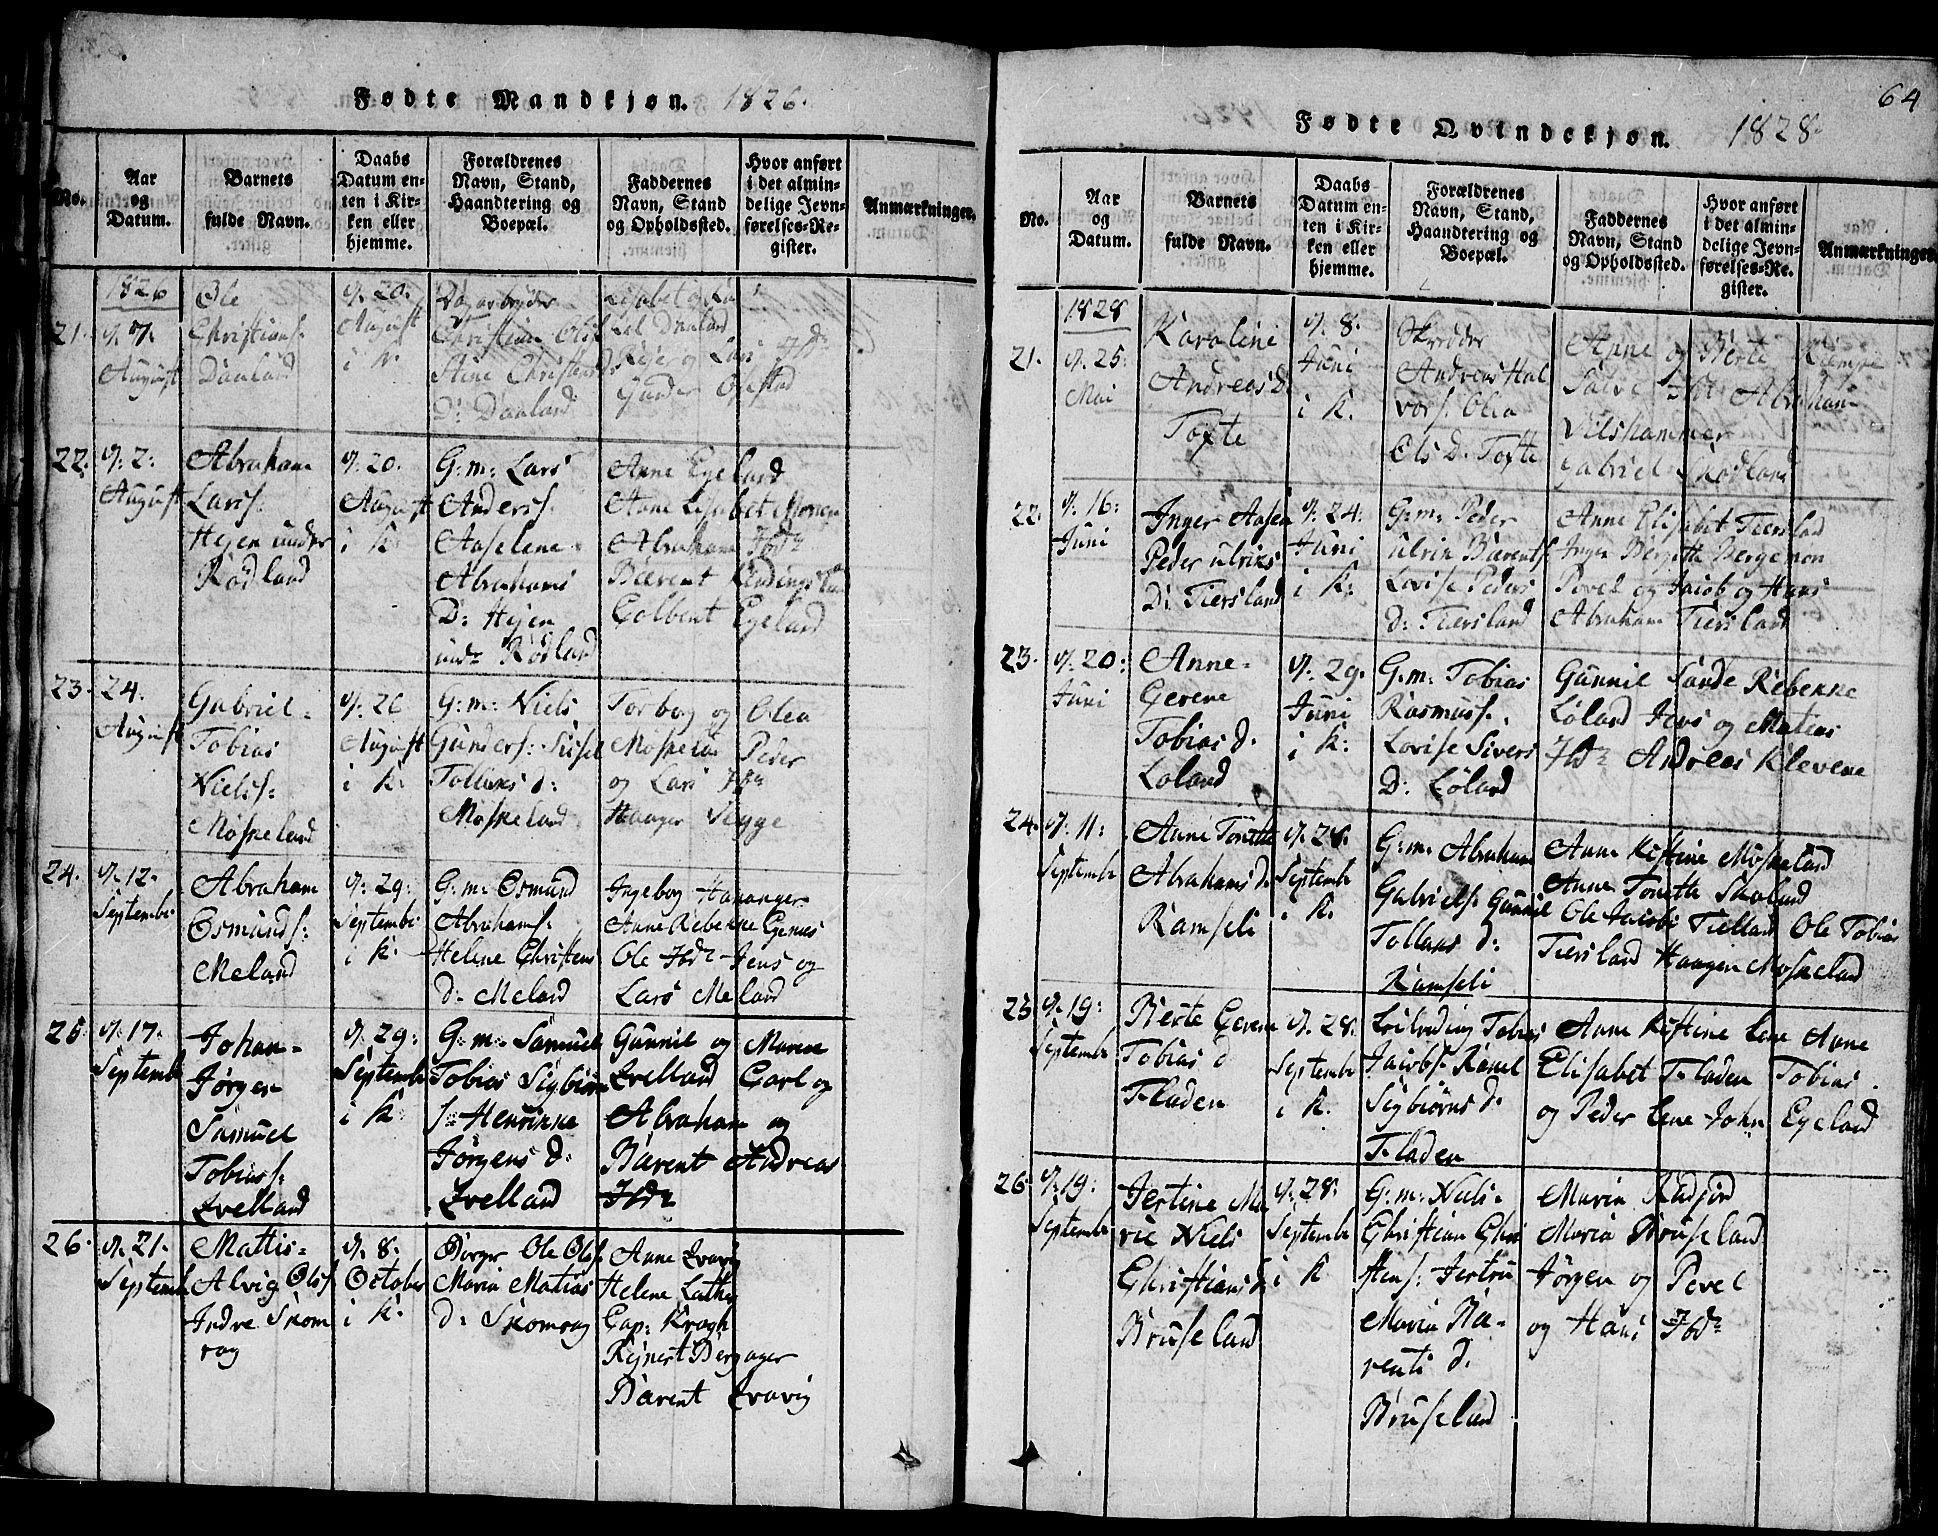 Fødte Mandkjøn. 1826.
No.
Aar
og
Datum.
Barnets
fulde Navn.
Daabs
Datum en-
ten i Kir-
ken eller
hjemme.
Forældrenes
Navn, Stand,
Haandtering og
Boepæl.
Faddernes
Navn, Stand
og Opholdssted.
Hvor anført
i det almin-
delige Jevn-
førelses-Re-
gister.
Anmærkninger.
1826
21.
d. 7.
August
Ole
Christians.
Dauland
d. 20.
August
i K.
Christian Ols.
Stine Christens
D: Dauland
Dauland
Lars Fbd:
Gunder Opstad
22.
d: 2:
August
Abraham
Lars s.
Hejen under
Rødland
d: 20.
August
i K.
G: m: Lars
Anders s.
Aaselene
Abrahams
D: Hejen
und: Rødland
Anne Egeland
Anne Lisabet Monen
Abraham Fbd:
Bærent
Colbent Egeland
23.
24.
August
Gabriel
Tobias
Niels s:
Møskeland
d: 26
August
i K.
G: m: Niels
Gunders: Sissel
Tollans d:
Møskeland
Torbog og Olea
Møskeland Peder
og Lars Fbd:
Haagen Segge
24.
d. 12.
Septembr
Abraham
Osmunds:
Meland
d: 29:
Septembr
i K.
G: m: Osmund
Abrahams.
Helene Christens
d: Meland
Ingebog Hananger
Anne Rebekke
Ole Fbd: Jens og
Lars Meland
25.
d. 17.
Septembr
Johan
Jørgen
Samuel
Tobias s:
Qvelland
d: 29:
Septembr
i K.
G: m: Samuel
Tobias Sigbiørn
s: Henrikke
Jørgens d:
Qvelland
Gunnil og Maren
Qvelland Carl og
Abraham og
Bærent Andreas
Fbd:
26.
d. 21.
Septembr
Mattis
Alvig Ols s.
Indre Skom
rag
d. 8.
October
i K.
Borger Ole Ols s.
Maria Matias
d: Skomrag
Anne Qvavig
Helene
Cap: Kragh
Rejnert Bergager
Barent Qvavig
64
Fødte Qvindekjøn. 1828.
No.
Aar
og
Datum.
Barnets
fulde Navn.
Daabs
Datum en-
ten i Kir-
ken eller
hjemme.
Forældrenes
Navn, Stand,
Haandtering og
Boepæl.
Faddernes
Navn, Stand
og Opholdssted.
Hvor anført
i det almin-
delige Jevn-
førelses-Re-
gister.
Anmærkninger.
1828
21.
d. 25.
Mai
Karoline
Andreas D.
Tofte
d. 8.
Juni
i K.
Skræder
Andreas Hal
vors. Olea
Ols D. Tofte
Anne og Berte
Salve Fbd: Abraham
Vilshammer
Gabriel Skodland
22.
d. 16.
Juni
Inger Aasen
Peder Ulriks
D: Tiersland
d. 24.
Juni
i K.
G: m: Peder
Ulrik Bærents.
Lovise Peders
d: Tiersland
Anne Elisabet Tiersland
Inger Bergitte Bergemon
Povel og Jacob og Hans
Abraham Tiersland
23.
d. 20:
Juni
Anne
Gerene
Tobias d.
Løland
d. 29.
Juni
i K:
G. m: Tobias
Rasmus s.
Lovise Sivers
D: Løland
Gunnil Sande Rebekke
Løland Jens og Matias
Fbd: Andreas Klevene
24.
d. 11:
Septembr
Anne Tonette
Abrahams d.
Ramsli
d. 28.
Septembr
i K.
G: m: Abraham
Gabriels. Gunnil
Tollans d:
Ramsli
Anne Kistine Møskeland
Anne Tonette Skoland
Ole Jacobs Tielland Ole Tobias
Tiersland Haagen Møskeland
25
d. 19:
Septembr
Berte Gerene
Tobias d
Fladen
d. 28.
Septembr
i K.
Tobias
Jacobs Ranel
Sigbiørns d.
Fladen
Anne Kistine Lene Anne
Elisabet Fladen Tobias
og Peder Lene John Egeland
26.
d. 19:
Septembr
Jertine Ma
rie Niels
Christians d.
Bruseland
d. 28.
Septembr
i K
G: m: Niels
Christian Chri
stens: Jertru
Maria Ba-
rents d.
Bruseland
Maria Rudjord
Maria Bruseland
Jørgen og Pevel
og Hans Fbd: